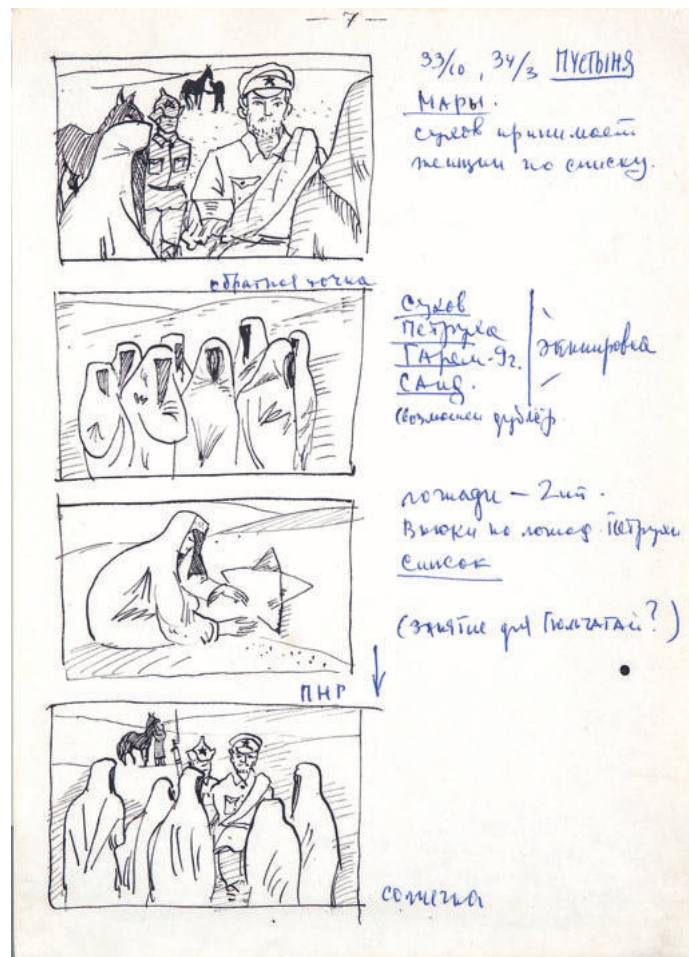 — 7 —
33/10, 34/3 ПУСТЫНЯ
МАРЫ.
Сухов принимает
женщин по списку.
обратная точка
Сухов
Петруха
Гарем - 9 г.
САИД.
(возможен дублёр
Экипировка
лошади — 2 шт.
Вьюки на лошад. Петрухи
Список
(занятие для Гюльчатай?)
ПНР